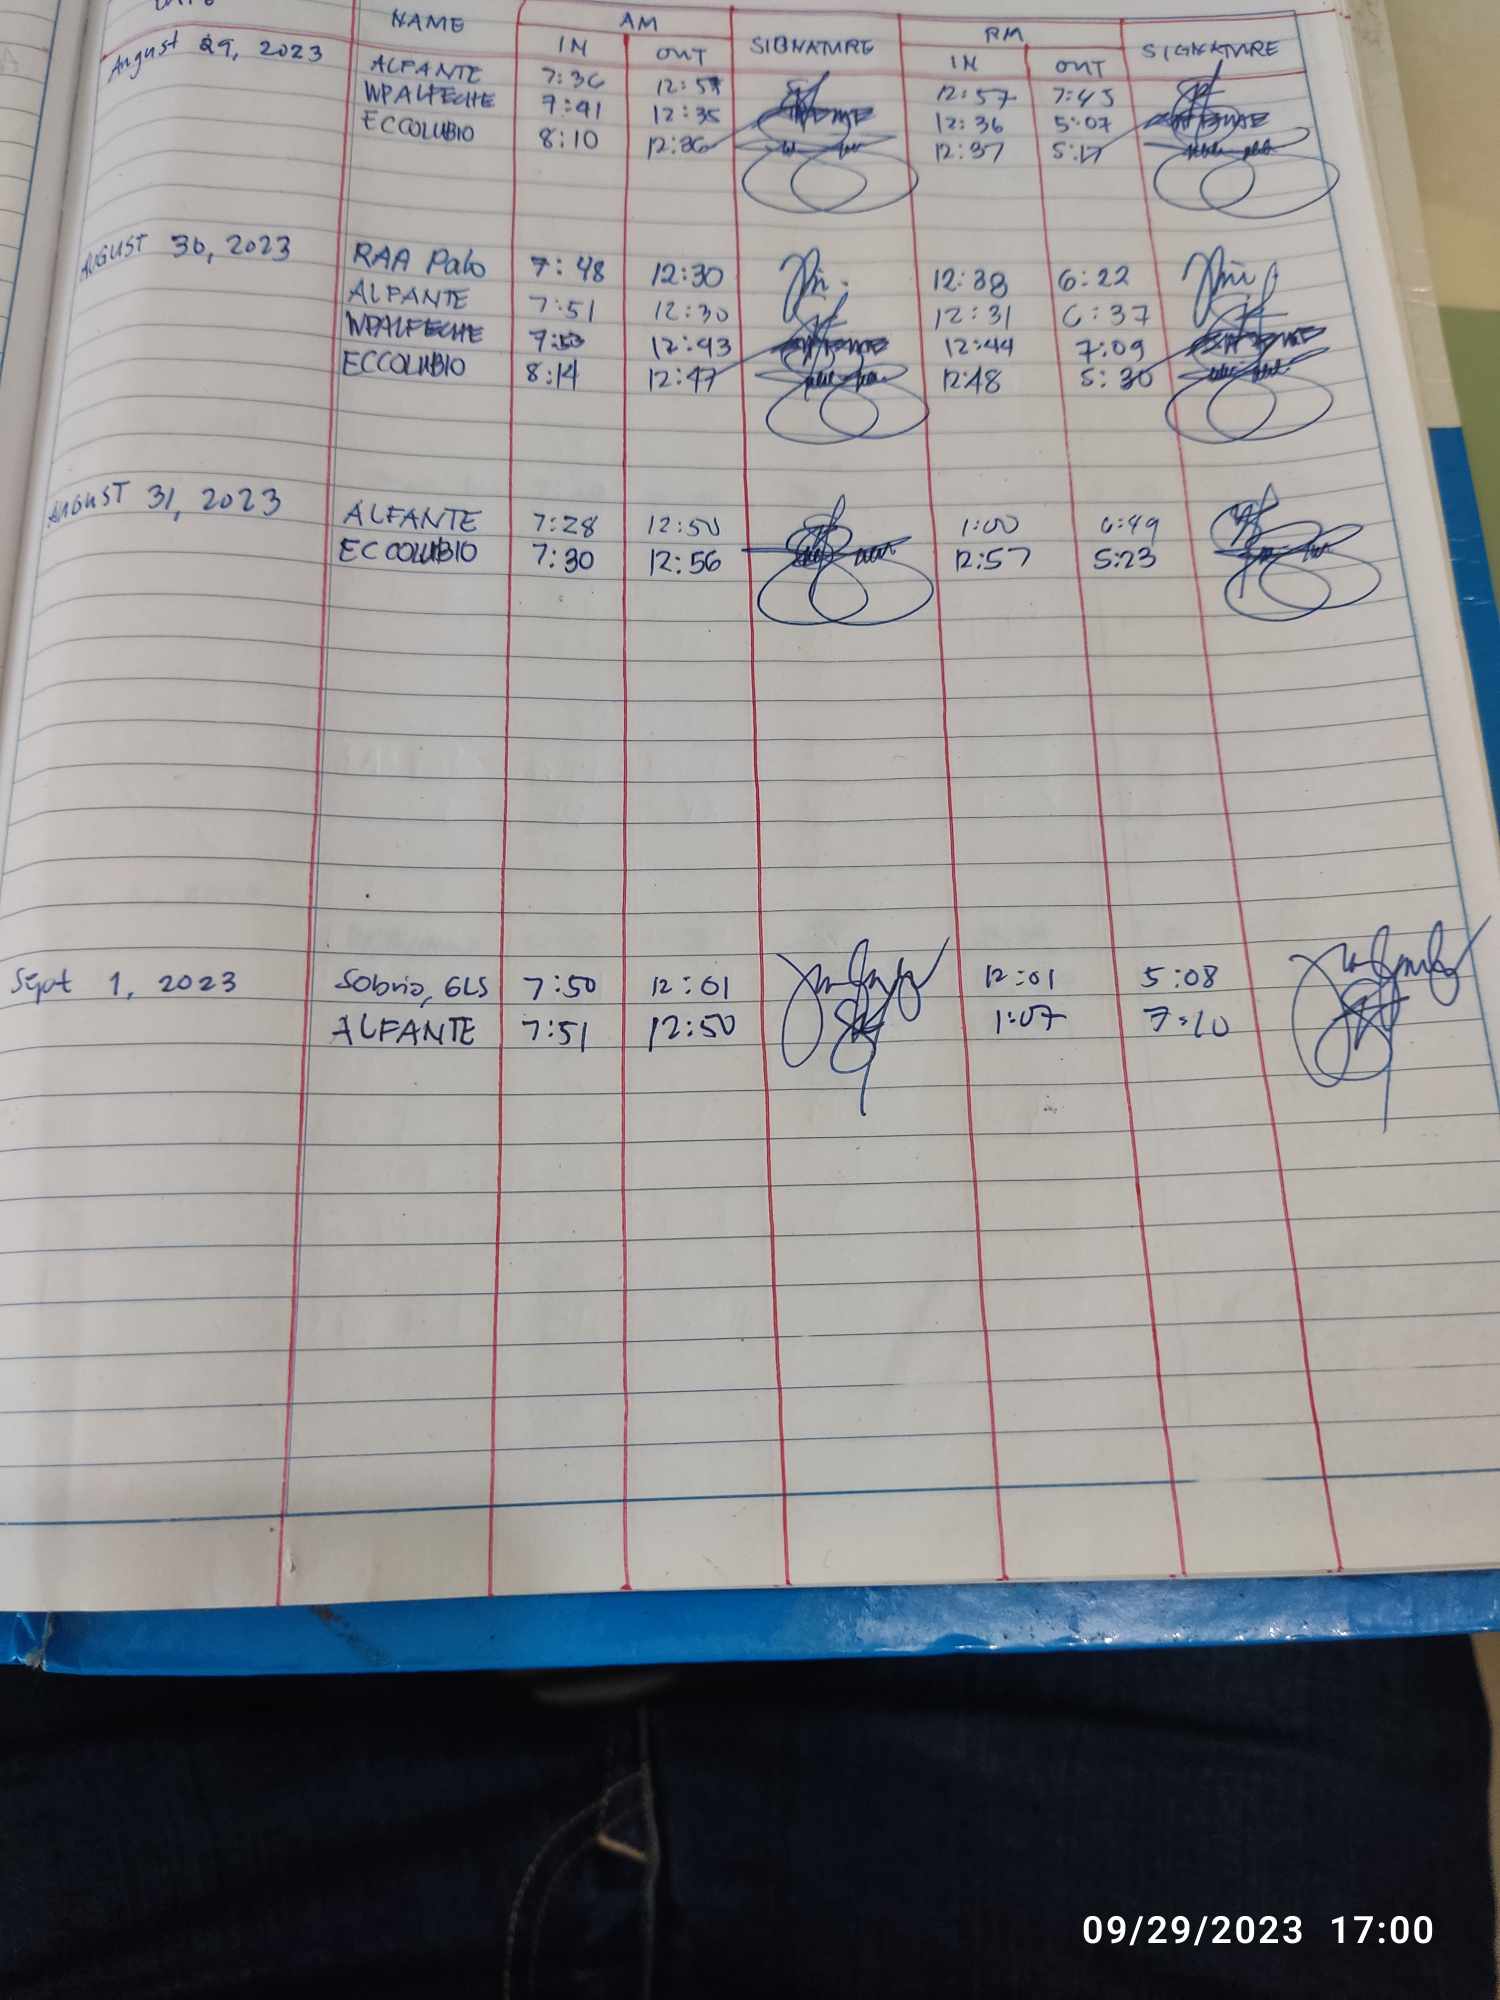 NAME AM SIGNATURE PM SIGNATURE
IN OUT IN OUT
August 29, 2023 ALFANTE 7:36 12:57 12:57 7:45
WPALFECHE 7:41 12:35 12:36 5:07
ECCOLUBIO 8:10 12:36 12:37 5:17
AUGUST 30, 2023 RAA Palo 7:48 12:30 12:38 6:22
ALFANTE 7:51 12:30 12:31 6:37
WPALFECHE 12:43 12:44 7:09
ECCOLUBIO 8:14 12:47 12:48 5:30
AUGUST 31, 2023 ALFANTE 7:28 12:50 1:00 6:49
ECCOLUBIO 7:30 12:56 12:57 5:23
Sept 1, 2023 Sobrio, GLS 7:50 12:01 12:01 5:08
ALFANTE 7:51 12:50 1:07 7:10
09/29/2023 17:00